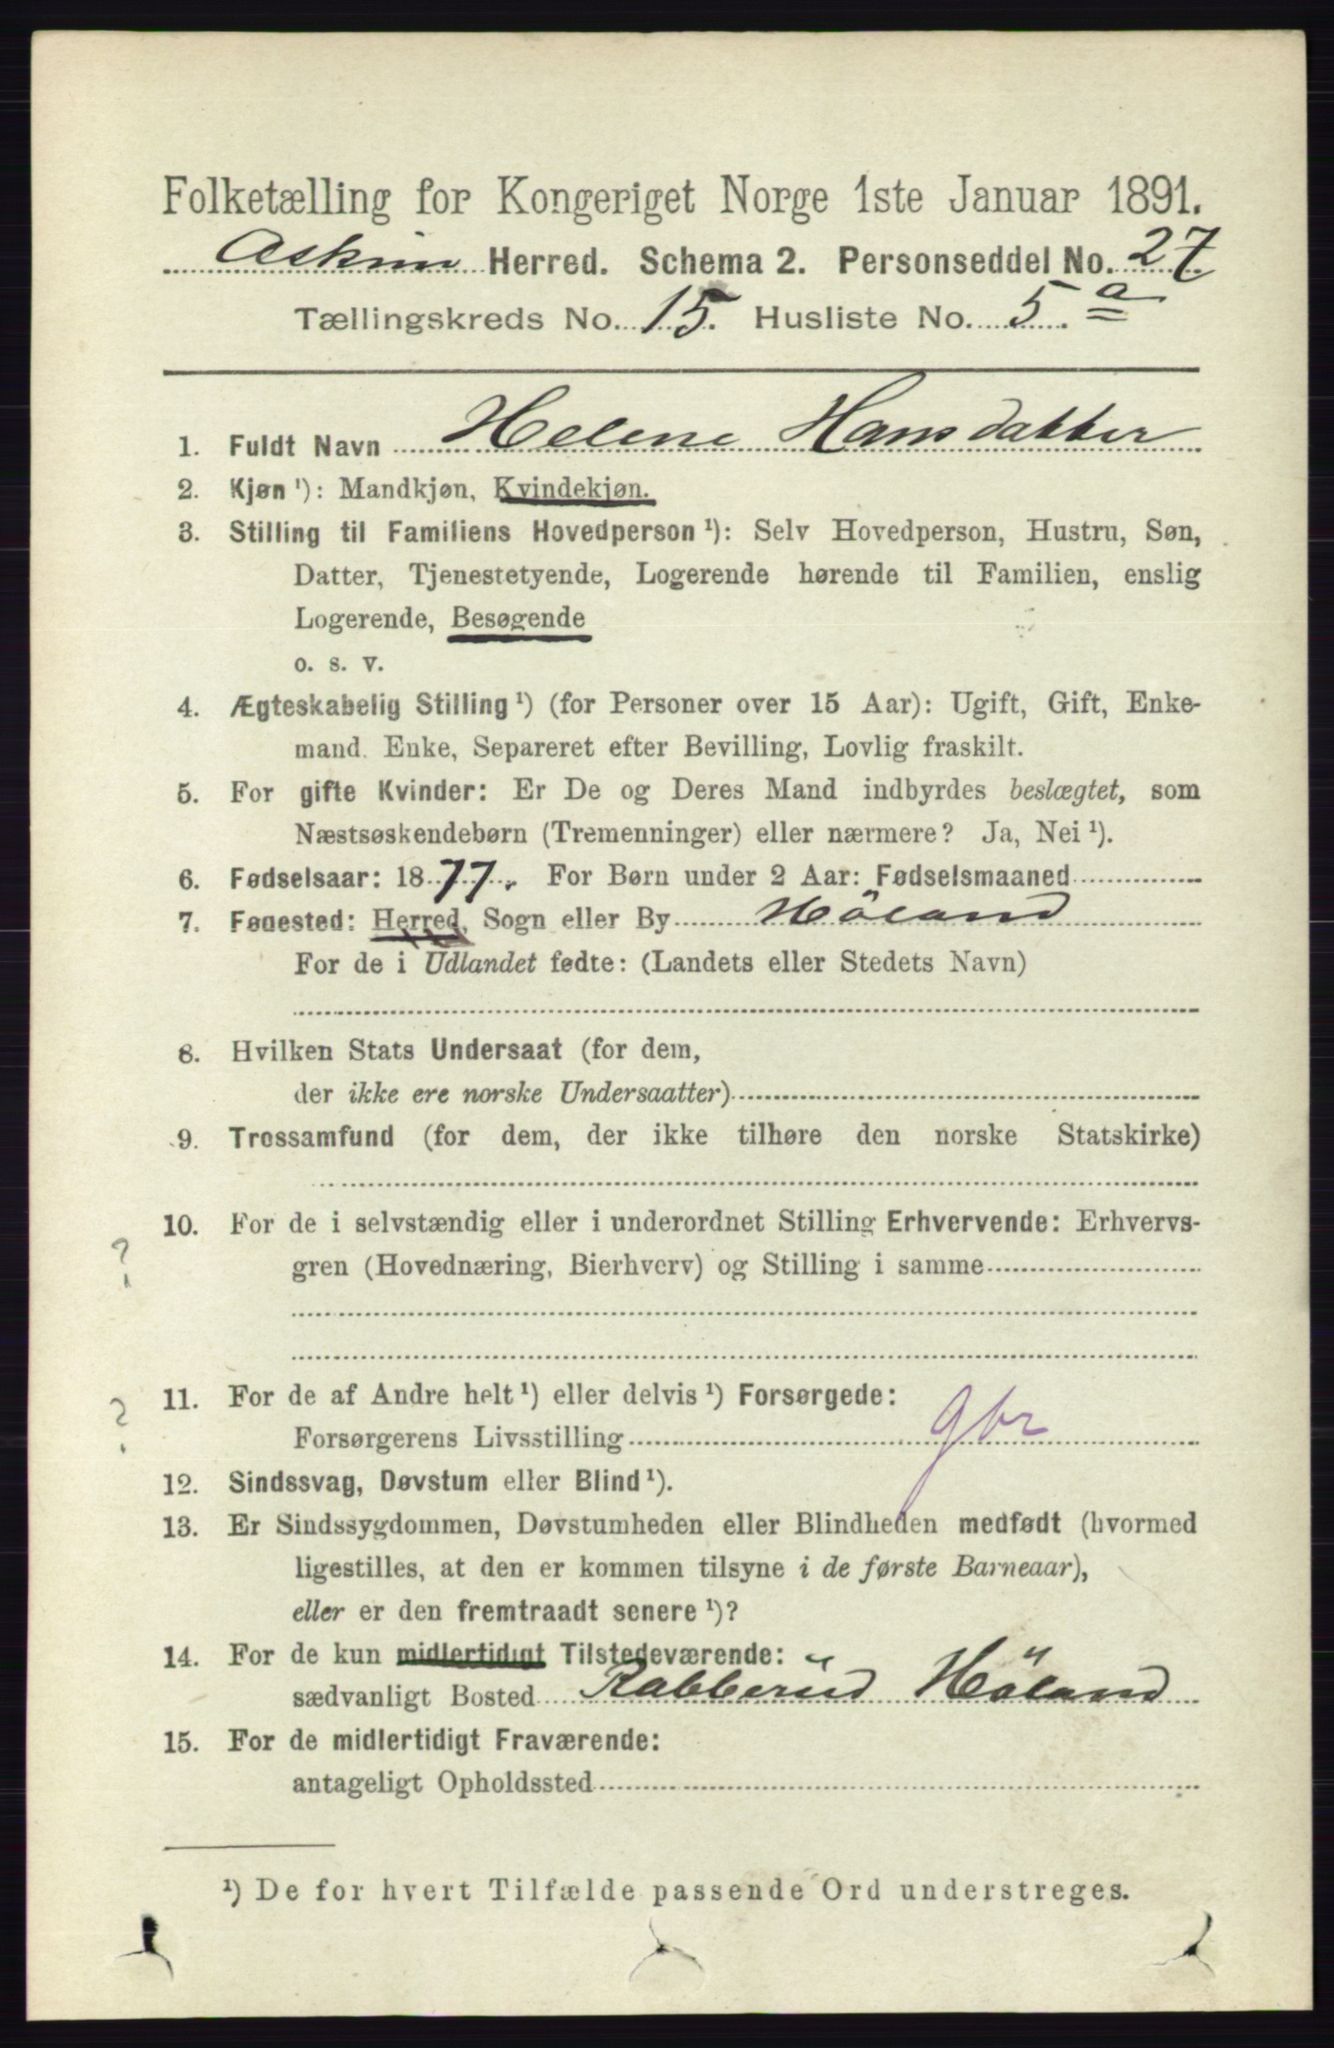 Folketælling for Kongeriget Norge 1ste Januar 1891.
Askim Herred. Schema 2. Personseddel No. 27
Tællingskreds No. 15. Husliste No. 5 a
1. Fuldt Navn Helene Hansdatter
2. Kjøn ¹): Mandkjøn, Kvindekjøn.
3. Stilling til Familiens Hovedperson ¹): Selv Hovedperson, Hustru, Søn,
Datter, Tjenestetyende, Logerende hørende til Familien, enslig
Logerende, Besøgende
o. s. v.
4. Ægteskabelig Stilling ¹) (for Personer over 15 Aar): Ugift, Gift, Enke-
mand. Enke, Separeret efter Bevilling, Lovlig fraskilt.
5. For gifte Kvinder: Er De og Deres Mand indbyrdes beslægtet, som
Næstsøskendebørn (Tremenninger) eller nærmere? Ja, Nei ¹).
6. Fødselsaar: 1877. For Børn under 2 Aar: Fødselsmaaned
7. Fødested: Herred, Sogn eller By Höland
For de i Udlandet fødte: (Landets eller Stedets Navn)
8. Hvilken Stats Undersaat (for dem,
der ikke ere norske Undersaatter)
9. Trossamfund (for dem, der ikke tilhøre den norske Statskirke)
10. For de i selvstændig eller i underordnet Stilling Erhvervende: Erhvervs-
? gren (Hovednæring, Bierhverv) og Stilling i samme
11. For de af Andre helt ¹) eller delvis ¹) Forsørgede:
? Forsørgerens Livsstilling gbr
12. Sindssvag, Døvstum eller Blind ¹).
13. Er Sindssygdommen, Døvstumheden eller Blindheden medfødt (hvormed
ligestilles, at den er kommen tilsyne i de første Barneaar),
eller er den fremtraadt senere ¹)?
14. For de kun midlertidigt Tilstedeværende:
sædvanligt Bosted Rabberud Höland
15. For de midlertidigt Fraværende:
antageligt Opholdssted
¹) De for hvert Tilfælde passende Ord understreges.